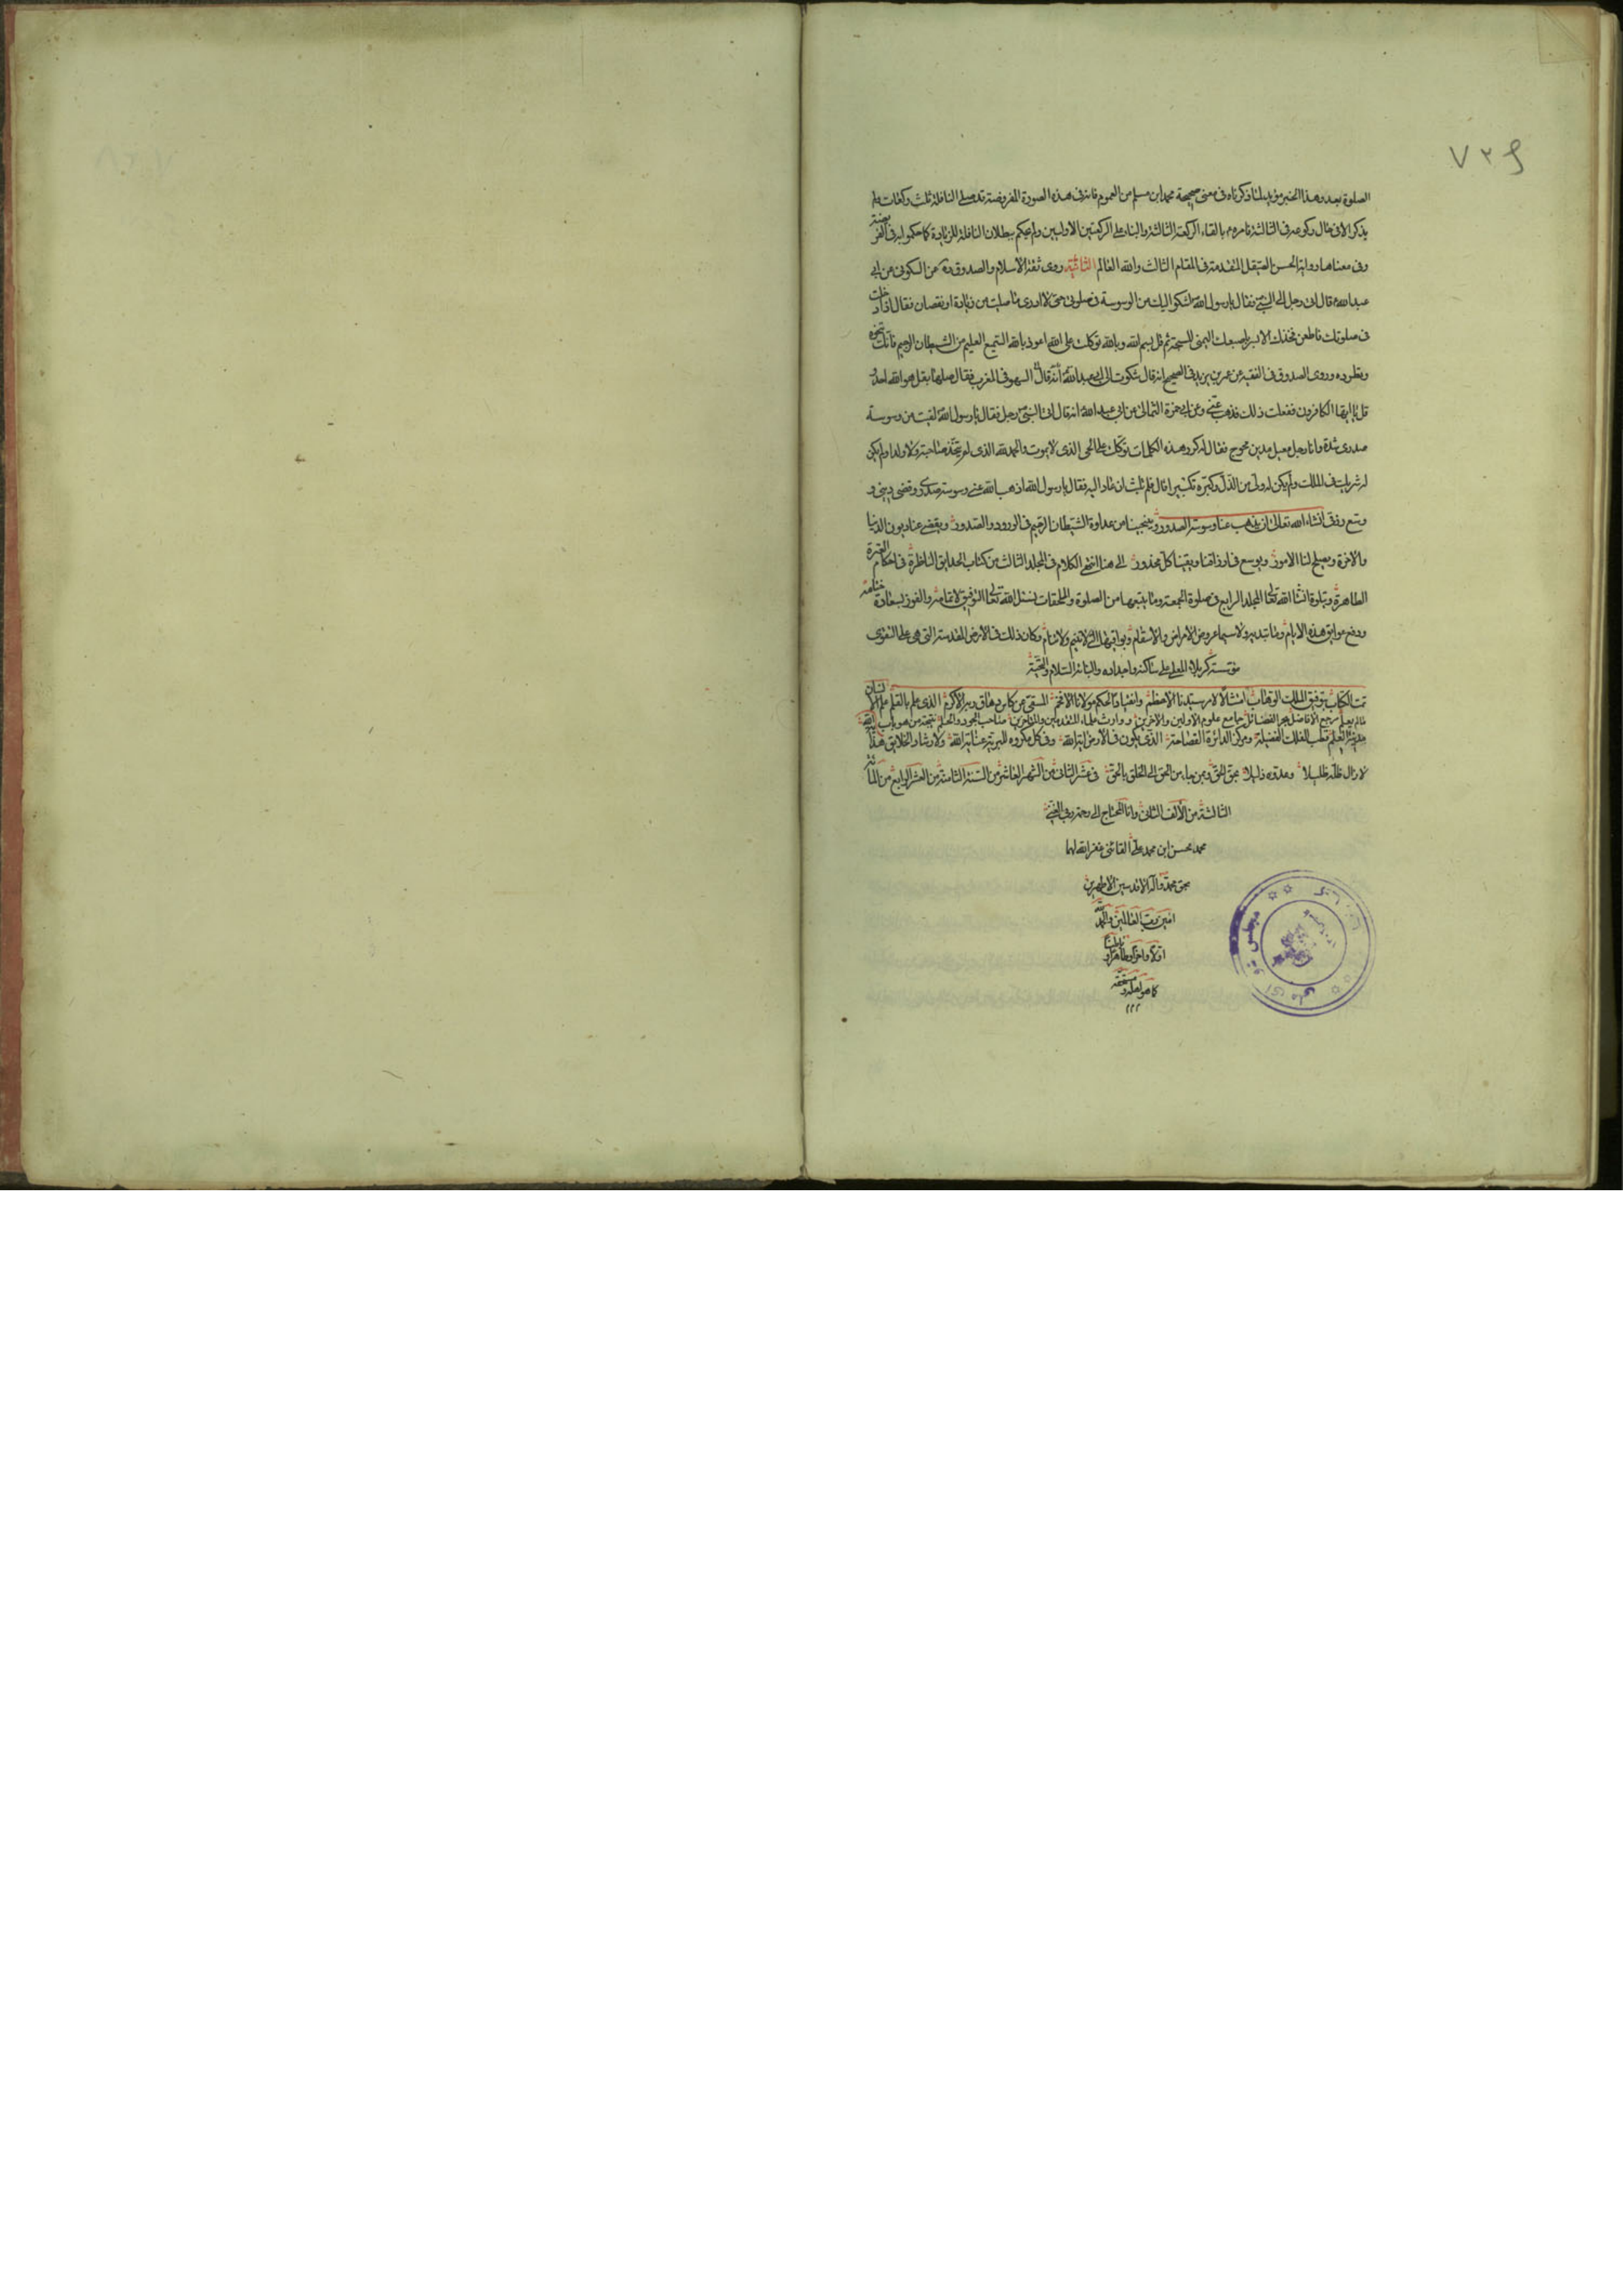 ۷۳۹
الصلوة بعد وهذا الخبر مؤيد لما ذكرناه فى معنى صحيحة محمد ابن مسلم من العموم فانه فى هذه الصورة المفروضة قد صلى النافلة ثلث ركعات ولم
يذكر الا فى حال ركوعه فى الثالثة فامره بالقاء الركعة الثالثة والبناء على الركعتين الاوليين ولم يحكم ببطلان النافلة للزيادة كما حكموا به فى الفريضة
وفى معناها رواية الحسن الصيقل المتقدمة فى المقام الثالث والله العالم الثانية روى ثقة الاسلام والصدوق عن السكونى عن ابى
عبد الله قال اتى رجل الى النبى فقال يا رسول الله اشكو اليك من الوسوسة فى صلوتى حتى لا ادرى ما صليت من زيادة او نقصان فقال اذا دخلت
فى صلوتك فاطعن فخذك الايسر باصبعك اليمنى المسبحة ثم قل بسم الله وبالله توكلت على الله اعوذ بالله السميع العليم من الشيطان الرجيم فانك تنحره
وتطرده وروى الصدوق فى الفقيه عن عمر بن يزيد فى الصحيح انه قال شكوت الى ابى عبد الله السهو فى المغرب فقال صلها بقل هو الله احد و
قل يا ايها الكافرون ففعلت ذلك فذهب عنى وعن ابى حمزة الثمالى عن ابى عبد الله انه قال اتى النبى رجل فقال يا رسول الله لقيت من وسوسة
صدرى شدة وانا رجل معيل مدين محوج فقال له كرر هذه الكلمات توكلت على الحى الذى لا يموت والحمد لله الذى لم يتخذ صاحبة ولا ولدا ولم يكن
له شريك فى الملك ولم يكن له ولى من الذل وكبره تكبيرا قال فلم يلبث ان عاد اليه فقال يا رسول الله اذهب الله عنى وسوسة صدرى وقضى دينى و
وسع رزقى انشاء الله تعالى ان يذهب عنا وسوسة الصدور وينجينا من عداوة الشيطان الرجيم فى الورود والصدور ويقضى عنا ديون الدنيا
والاخرة ويصلح لنا الامور ويوسع فى ارزاقنا ويقينا كل محذور الى هنا انتهى الكلام فى المجلد الثالث من كتاب الحدايق الناظرة فى احكام العترة
الطاهرة ويتلوه انشاء الله تعالى المجلد الرابع فى صلوة الجمعة وما يتبعها من الصلوة والملحقات نسئل الله تعالى التوفيق لاتمامه والفوز بسعادة ختامه
ودفع عوايق هذه الايام ولا سيما عروض الامراض والاسقام وكان ذلك فى الارض المقدسة التى هى على التقوى
مؤسسة كربلاء المعلى على ساكنه واجداده وابنائه السلام والتحية
تمت الكتاب بتوفيق الملك الوهاب امتثالا لامر سيدنا الاعظم وانقيادا لحكم مولانا الافخم المستقى من كاس دهاق وربك الاكرم الذى علم بالقلم علم الانسان
ما لم يعلم مرجع الافاضل بحر الفضائل جامع علوم الاولين والاخرين ووارث علماء المتقدمين والمتاخرين صاحب الجود والحلم
مدينة العلم قطب الفلك الفضيلة ومركز الدائرة الفصاحة الذى يكون فى الارض اية الله وفى كل مكروه للبرية عناية الله ولارشاد الخلايق
لا زال ظله ظليلا وعدوه ذليلا بحق الحق ومن جاء من الحق الى الخلق بالحق فى عشر الثانى من الشهر العاشر من السنة الثامنة من العشر الرابع من المائة
الثالثة من الالف الثانى وانا المحتاج الى رحمة ربى الغنى
محمد محسن ابن محمد على القائنى غفر الله لهما
بحق محمد واله الاقدسين الاطهرين
امين رب العالمين والحمد لله
اولا واخرا وظاهرا وباطنا
كما هو اهله ومستحقه
مجلس شوراى ملى